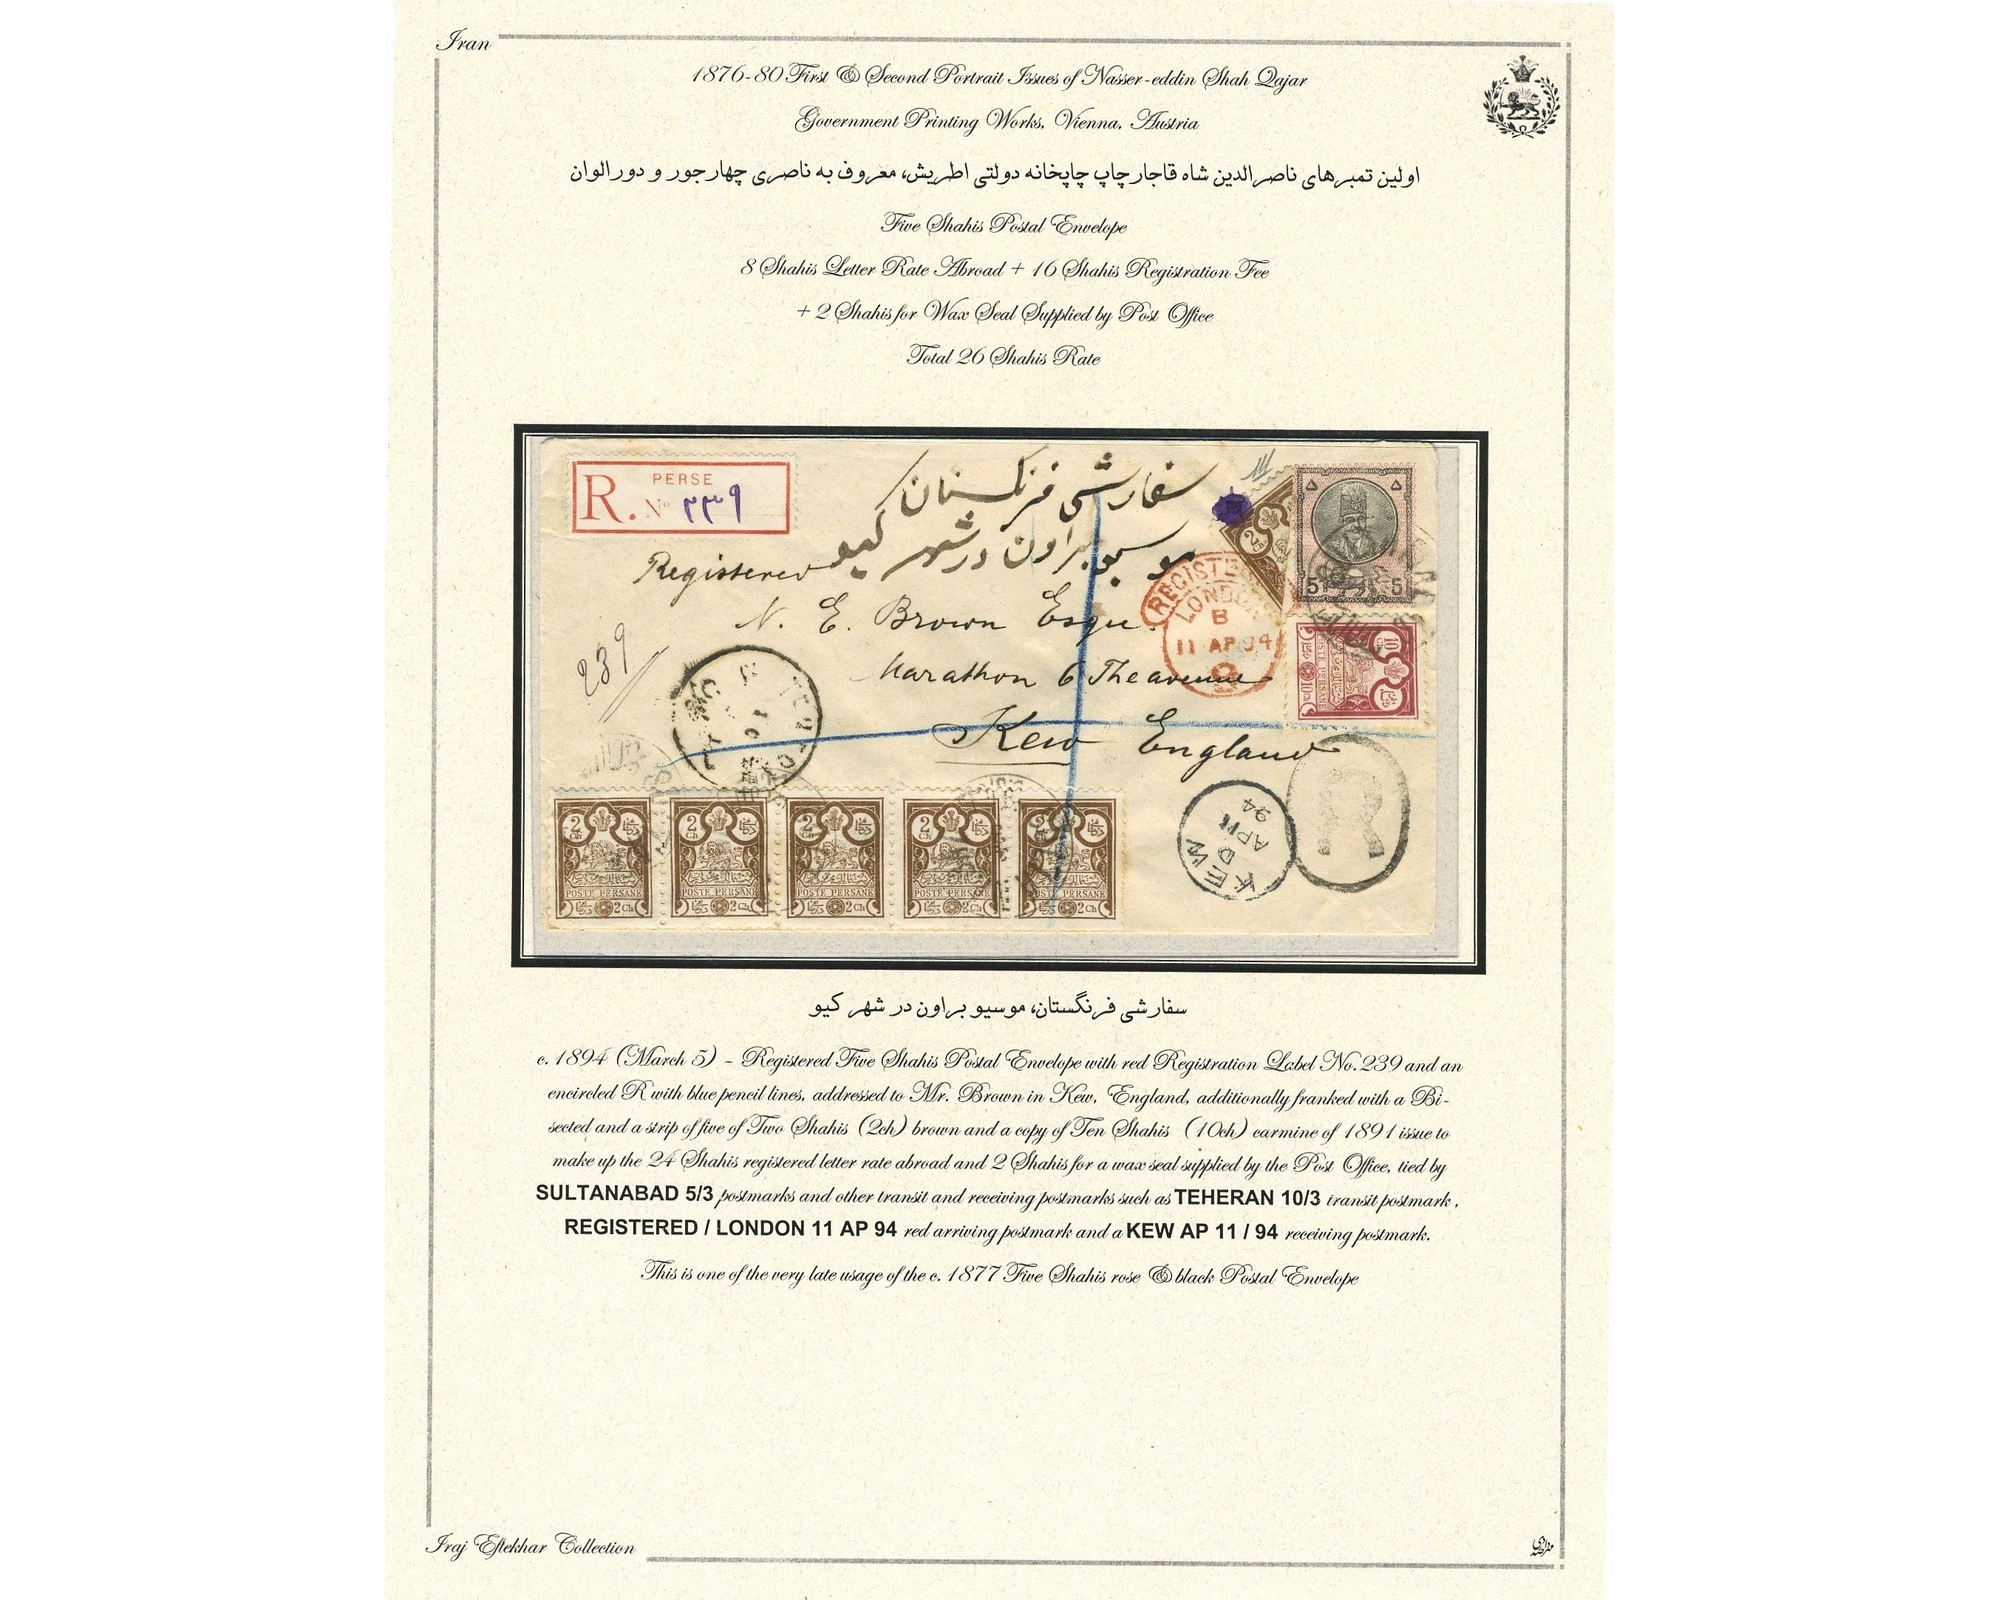 Iran
1876-80 First & Second Portrait Issues of Nasser-eddin Shah Qajar
Government Printing Works, Vienna, Austria
اولین تمبرهای ناصرالدین شاه قاجار چاپ چاپخانه دولتی اطریش، معروف به ناصری چهارجور و دورالوان
Five Shahis Postal Envelope
8 Shahis Letter Rate Abroad + 16 Shahis Registration Fee
+ 2 Shahis for Wax Seal Supplied by Post Office
Total 26 Shahis Rate
PERSE
R. Nº ٢٣٩
سفارشی فرنگستان
موسیو براون در شهر کیو
Registered
N. E. Brown Esqu.
Marathon 6 The avenue
Kew England
239
REGISTERED
LONDON
B
11 AP 94
8
5 5
10
POSTE PERSANE
10 Ch
R
KEW
D
AP 11
94
2 Ch
2 Ch
2 Ch
2 Ch
2 Ch
POSTE PERSANE
POSTE PERSANE
POSTE PERSANE
POSTE PERSANE
POSTE PERSANE
2 Ch
2 Ch
2 Ch
2 Ch
2 Ch
سفارشی فرنگستان، موسیو براون در شهر کیو
c. 1894 (March 5) - Registered Five Shahis Postal Envelope with red Registration Label No.239 and an
encircled R with blue pencil lines, addressed to Mr. Brown in Kew, England, additionally franked with a Bi-
sected and a strip of five of Two Shahis (2ch) brown and a copy of Ten Shahis (10ch) carmine of 1891 issue to
make up the 24 Shahis registered letter rate abroad and 2 Shahis for a wax seal supplied by the Post Office, tied by
SULTANABAD 5/3 postmarks and other transit and receiving postmarks such as TEHERAN 10/3 transit postmark,
REGISTERED / LONDON 11 AP 94 red arriving postmark and a KEW AP 11 / 94 receiving postmark.
This is one of the very late usage of the c. 1877 Five Shahis rose & black Postal Envelope
Iraj Eftekhar Collection